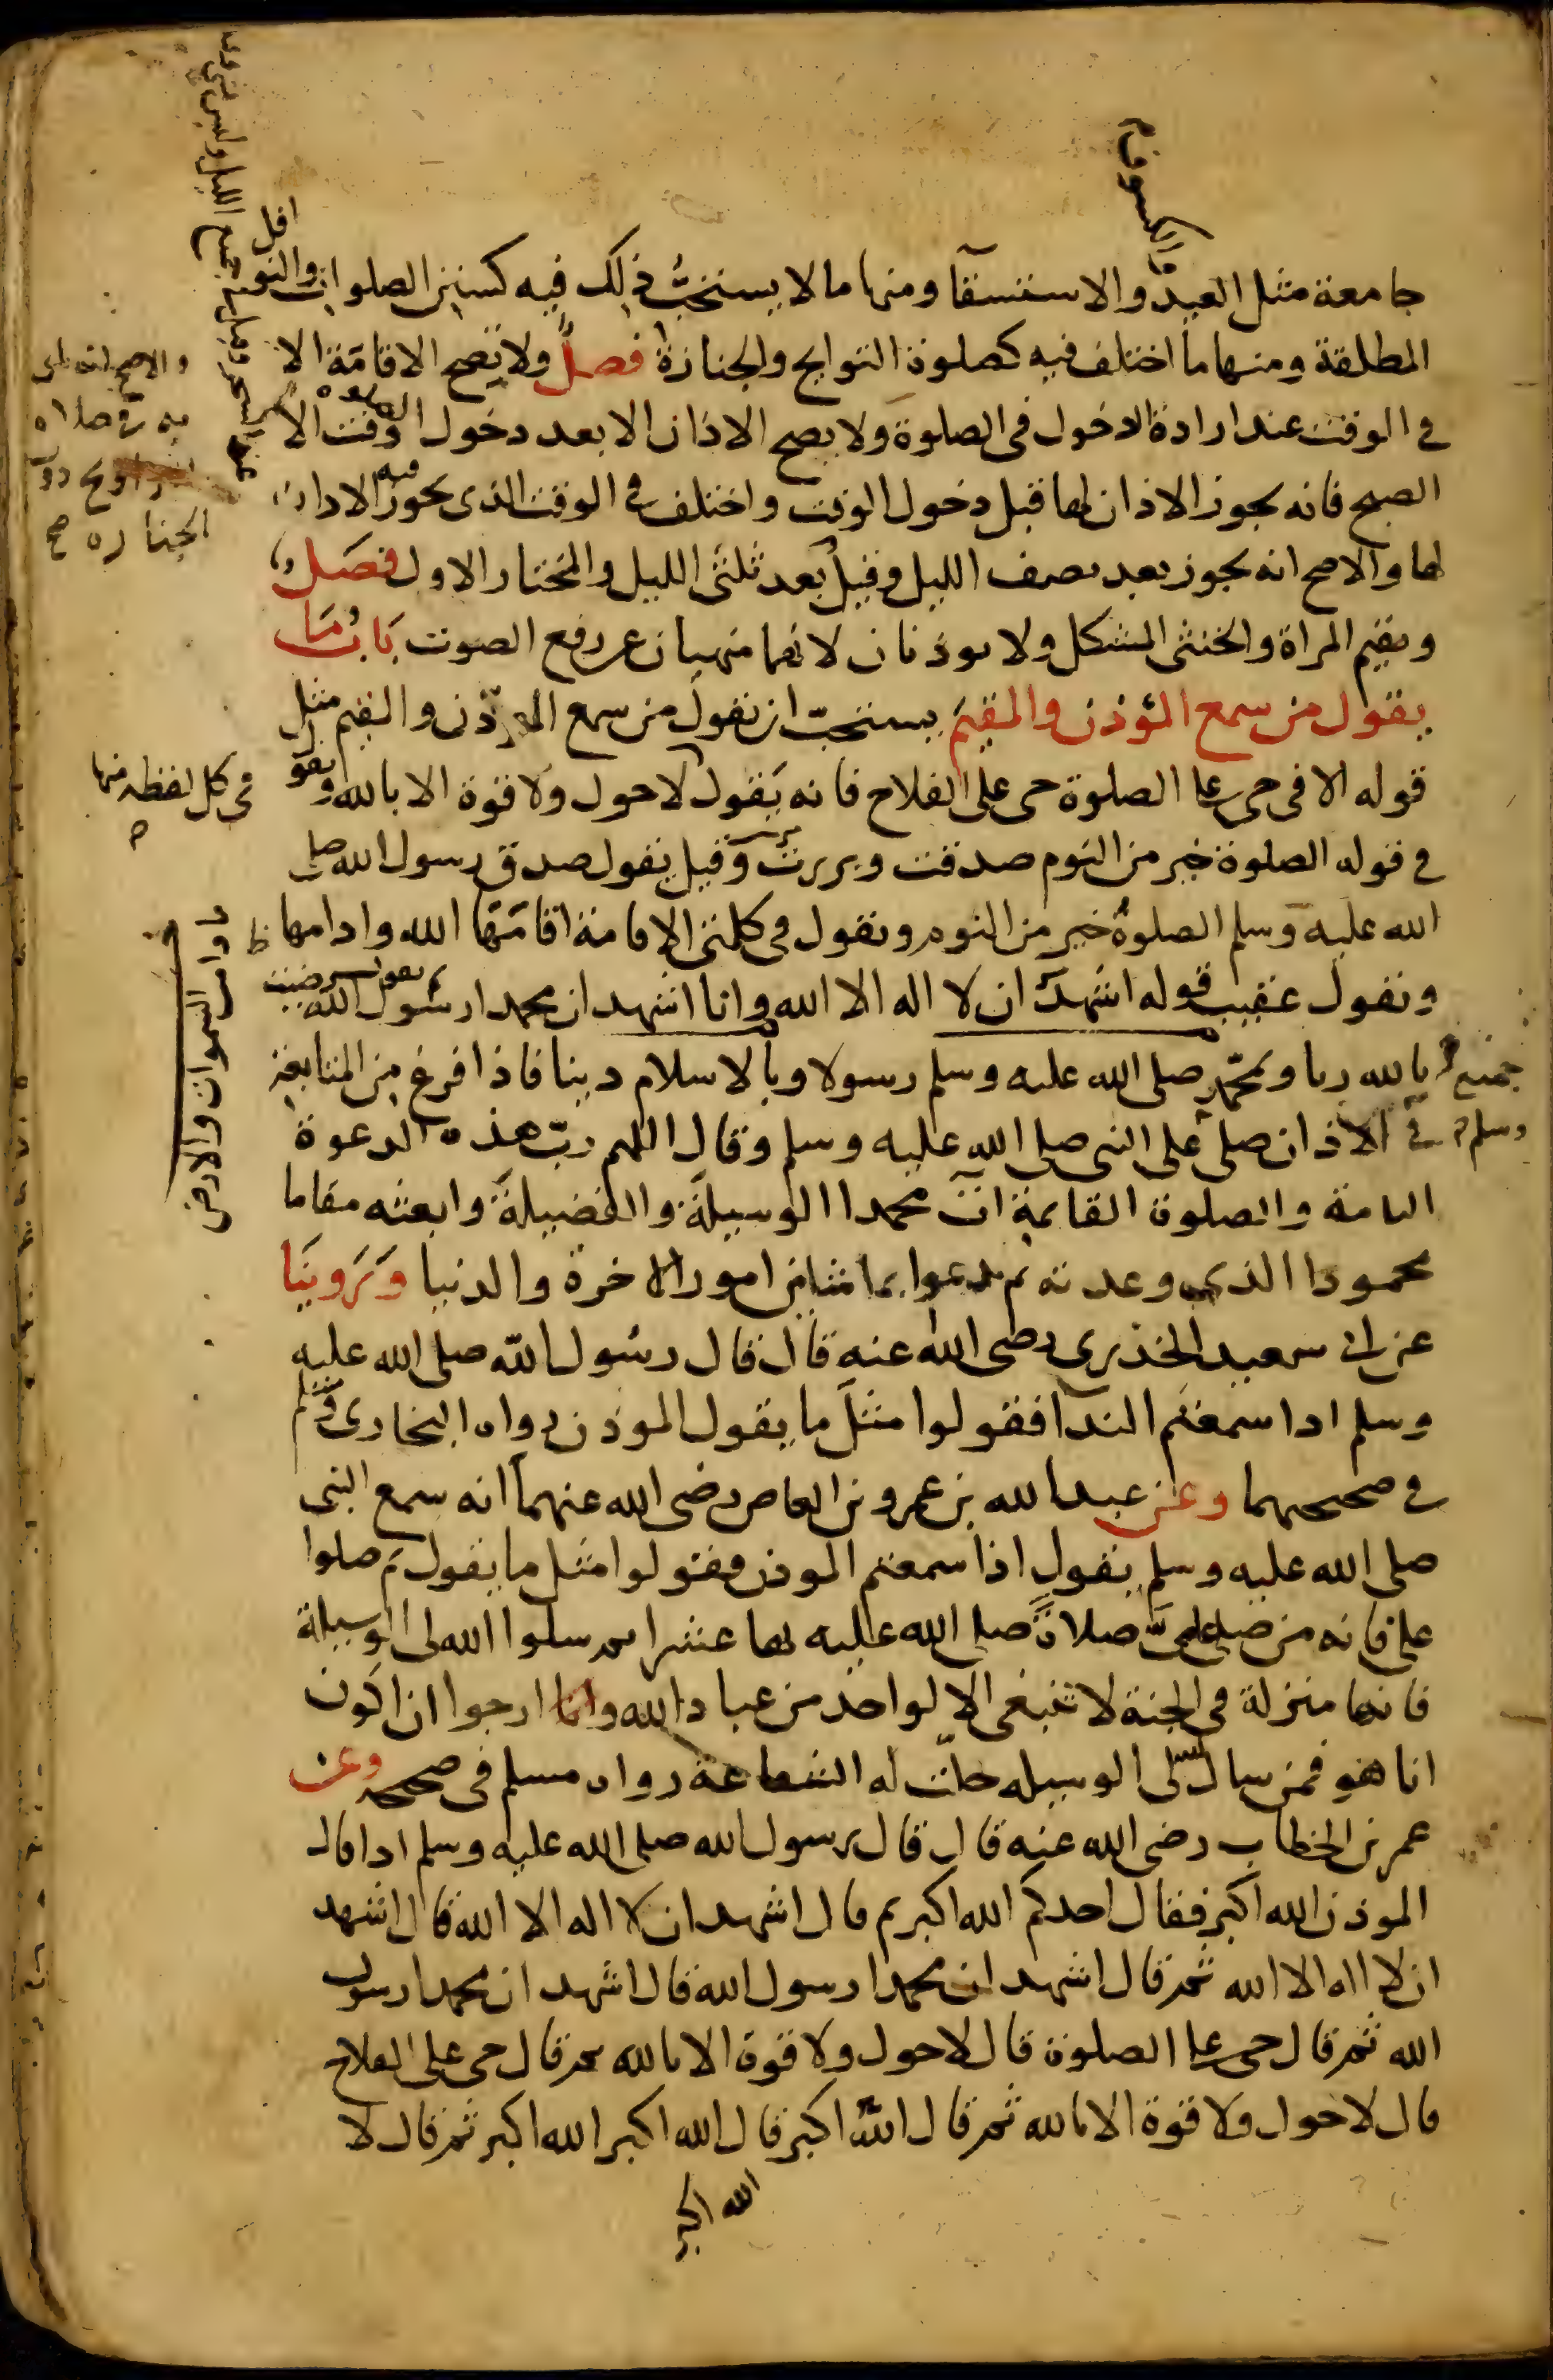 جامعة مثل العيد والاستسقا ومنها ما لا يستحب ذلك فيه كسنن الصلوات والنوافل
والكسوف
المطلقة ومنها ما اختلف فيه كصلوة التراويح والجنازة فصل ولا تصح الاقامة الا
في الوقت عند ارادة الدخول في الصلوة ولا يصح الاذان الا بعد دخول الوقت الا
الصبح فانه يجوز الاذان لها قبل دخول الوقت واختلف في الوقت الذي يجوز فيه الاذان
لها والاصح انه يجوز بعد نصف الليل وقيل بعد ثلثي الليل والمختار الاول فصل
وتقيم المراة والخنثى المشكل ولا يوذنان لانهما منهيان عن رفع الصوت باب ما
يقول من سمع المؤذن والمقيم يستحب ان يقول من سمع المؤذن والمقيم مثل
قوله الا في حي على الصلوة حي على الفلاح فانه يقول لا حول ولا قوة الا بالله ويقو
في كل لفظه منها
في قوله الصلوة خير من النوم صدقت وبررت وقيل يقول صدق رسول الله صلى
الله عليه وسلم الصلوة خير من النوم ويقول في كلمتي الاقامة اقامها الله وادامها
ما دامت السموات والارض
ويقول عقيب قوله اشهد ان لا اله الا الله وانا اشهد ان محمدا رسول الله ثم يقول رضيت
بالله ربا وبمحمد صلى الله عليه وسلم رسولا وبالاسلام دينا فاذا فرغ من المتابعة
في جميع الاذان صلى على النبي صلى الله عليه وسلم وقال اللهم رب هذه الدعوة
وسلم
التامة والصلوة القايمة ات محمدا الوسيلة والفضيلة وابعثه مقاما
محمودا الذي وعدته ثم يدعوا بما شا من امور الاخرة والدنيا وروينا
عن ابي سعيد الخدري رضى الله عنه قال قال رسول الله صلى الله عليه
وسلم اذا سمعتم الندا فقولوا مثل ما يقول الموذن رواه البخاري ومسلم
في صحيحهما وعن عبد الله بن عمرو بن العاص رضى الله عنهما انه سمع النبي
صلى الله عليه وسلم يقول اذا سمعتم الموذن فقولوا مثل ما يقول ثم صلوا
علي فانه من صلى علي صلاة صلى الله عليه بها عشرا ثم سلوا الله لي الوسيلة
فانها منزلة في الجنة لا تنبغي الا لواحد من عباد الله وانا ارجوا ان اكون
انا هو فمن سال الله لي الوسيله حلت له الشفاعة رواه مسلم في صحيحه وعن
عمر بن الخطاب رضى الله عنه قال قال رسول الله صلى الله عليه وسلم اذا قال
الموذن الله اكبر فقال احدكم الله اكبر ثم قال اشهد ان لا اله الا الله قال اشهد
ان لا اله الا الله ثم قال اشهد ان محمدا رسول الله قال اشهد ان محمدا رسول
الله ثم قال حي على الصلوة قال لا حول ولا قوة الا بالله ثم قال حي على الفلاح
قال لا حول ولا قوة الا بالله ثم قال الله اكبر قال الله اكبر الله اكبر ثم قال لا
الله اكبر